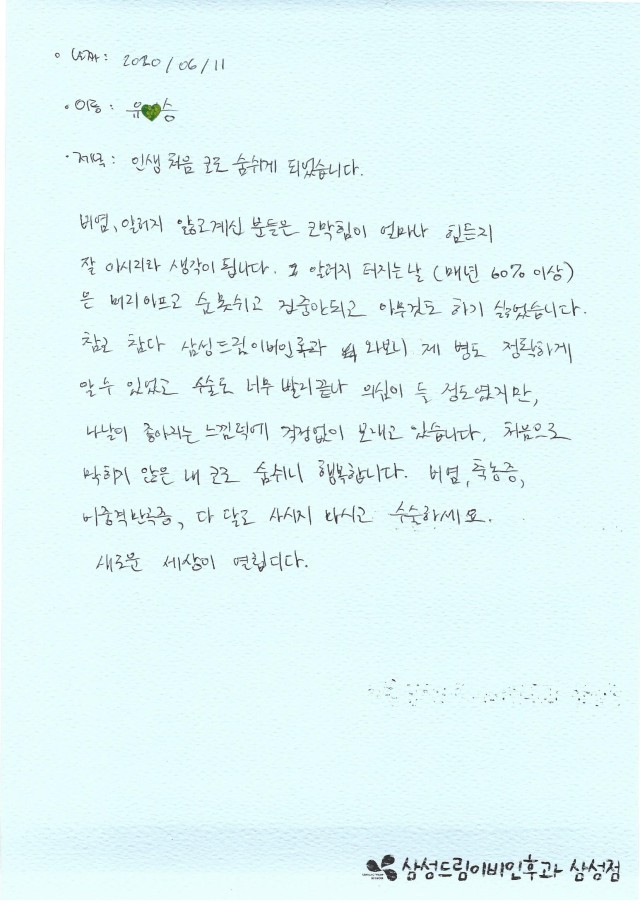 · 날짜: 2020/06/11
· 이름: 유💚승
· 제목: 인생 처음 코로 숨쉬게 되었습니다.
비염, 알러지 앓고계신 분들은 코막힘이 얼마나 힘든지
잘 아시리라 생각이 됩니다. 그 알러지 터지는날 (매년 60% 이상)
은 머리아프고 숨못쉬고 집중안되고 아무것도 하기 싫었습니다.
참고 참다 삼성드림이비인후과 와보니 제 병도 정확하게
알수 있었고 수술도 너무 빨리끝나 의심이 들 정도였지만,
나날이 좋아지는 느낌덕에 걱정없이 보내고 있습니다. 처음으로
막히지 않은 내 코로 숨쉬니 행복합니다. 비염, 축농증,
비중격만곡증, 다 달고 사시지 마시고 수술하세요.
새로운 세상이 열립디다.
삼성드림이비인후과 삼성점